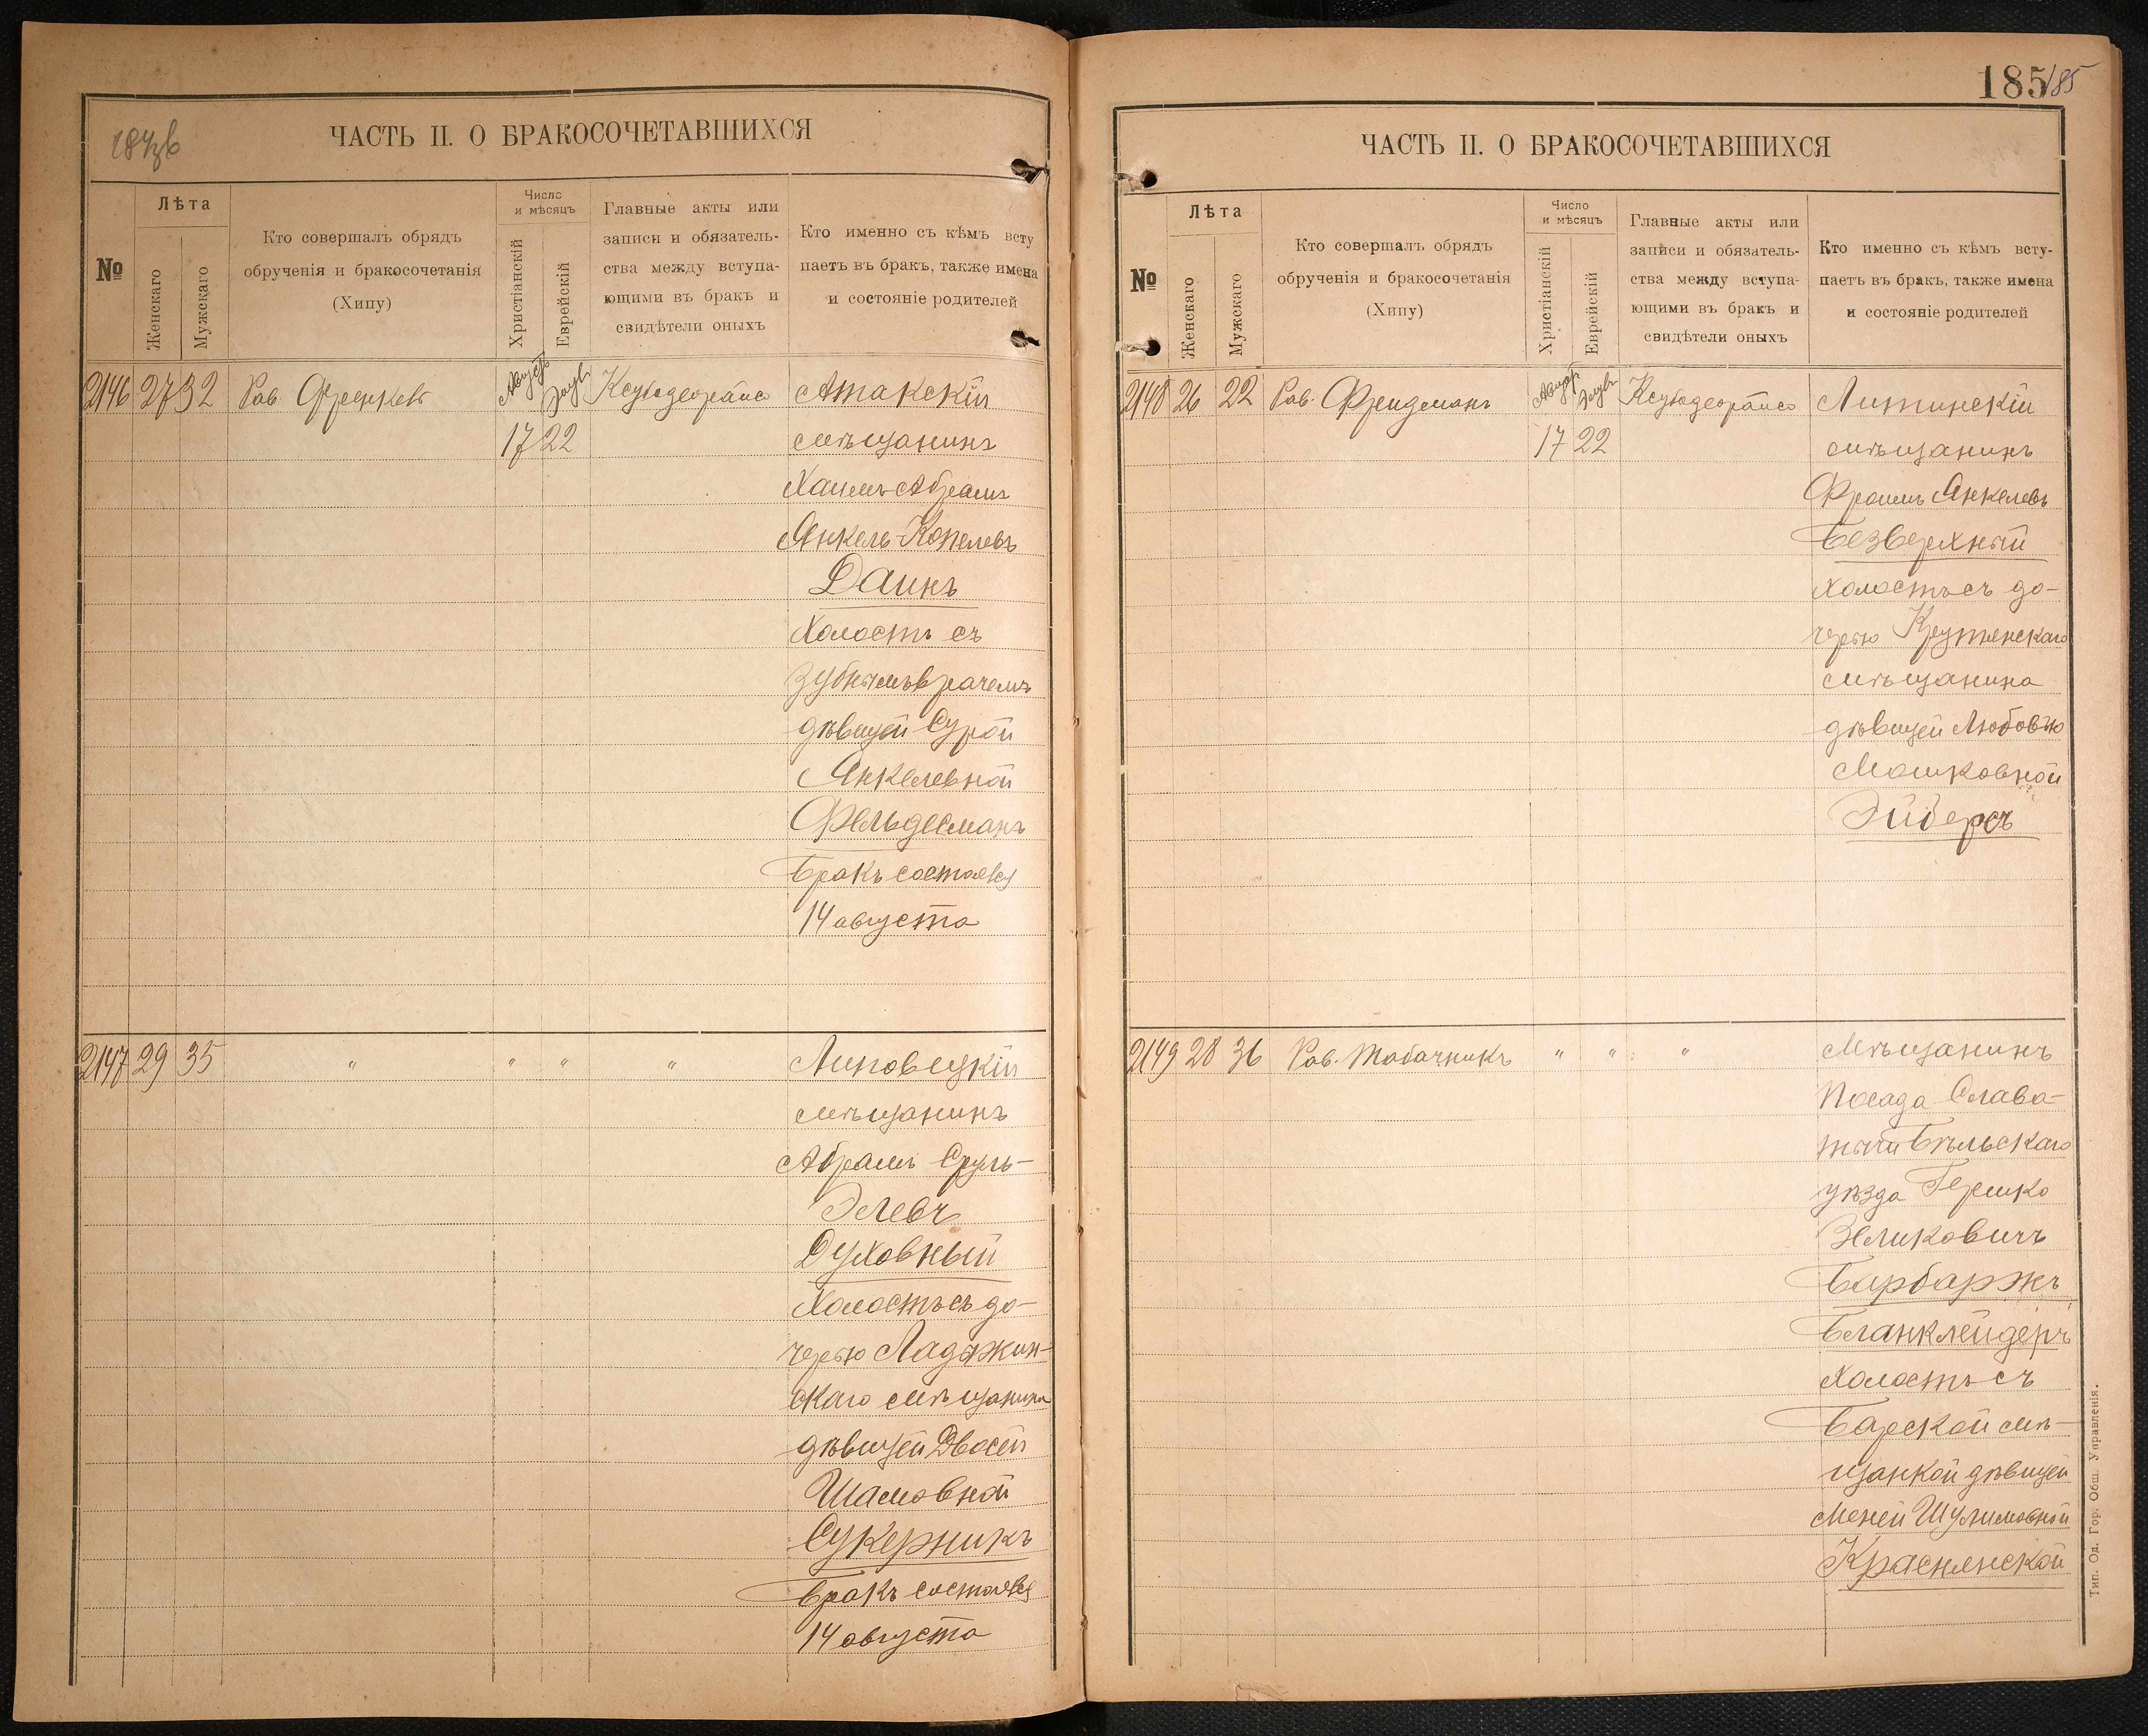 184 об
ЧАСТЬ II. О БРАКОСОЧЕТАВШИХСЯ
№
Лѣта
Женскаго
Мужскаго
Кто совершалъ обрядъ
обрученія и бракосочетанія
(Хипу)
Число
и мѣсяцъ
Христіанскій
Еврейскій
Главные акты или
записи и обязатель-
ства между вступа-
ющими въ бракъ и
свидѣтели оныхъ
Кто именно съ кѣмъ всту
паетъ въ бракъ, также имена
и состояніе родителей
2146 27 32 Рав. Френкель
Августъ
Элулъ
17 22
Ксубодеорайсо
Атакскій
мѣщанинъ
Хаимъ-Абрамъ
Янкель-Копелевъ
Даинъ
Холостъ съ
зубнымъ врачемъ
дѣвицей Сурой
Янкелевной
Фельдесманъ
Бракъ состоялся
14 августа
2147 29 35 " " " "
Липовецкій
мѣщанинъ
Абрамъ Сруль-
Элевъ
Духовный
Холостъ съ до-
черью Ладыжин-
скаго мѣщанина
дѣвицей Двосей
Шамовной
Сукерникъ
Бракъ состоялся
14 августа
185 185
ЧАСТЬ II. О БРАКОСОЧЕТАВШИХСЯ
№
Лѣта
Женскаго
Мужскаго
Кто совершалъ обрядъ
обрученія и бракосочетанія
(Хипу)
Число
и мѣсяцъ
Христіанскій
Еврейскій
Главные акты или
записи и обязатель-
ства между вступа-
ющими въ бракъ и
свидѣтели оныхъ
Кто именно съ кѣмъ всту-
паетъ въ бракъ, также имена
и состояніе родителей
2148 26 22 Рав. Фридманъ
Августъ
Элулъ
17 22
Ксубодеорайсо
Литинскій
мѣщанинъ
Фроимъ Янкелевъ
Безверхный
Холостъ съ до-
черью Крутянскаго
мѣщанина
дѣвицей Любовью
Мошковной
Эйдерсъ
2149 28 36 Рав. Табачникъ " " "
Мѣщанинъ
Посада Слава-
тычи Бѣльскаго
уѣзда Гершко
Зеликовичъ
Барбаржъ
Бланклейдеръ
Холостъ съ
Барской мѣ-
щанкой дѣвицей
Меней Шулимовной
Краснянской
Тип. Од. Гор. Общ. Управленія.